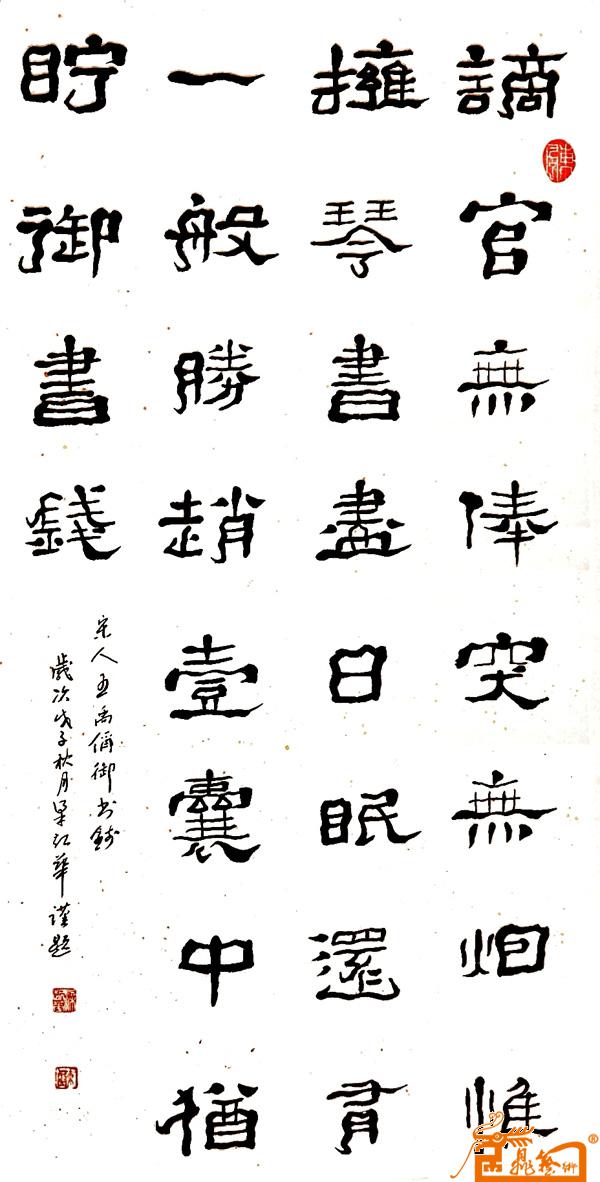 謫官無俸突無烟惟
擁琴書盡日眠還有
一般勝趙壹囊中猶
貯御書錢
宋人王禹偁御书錢
歲次戊子秋月梁華謹題